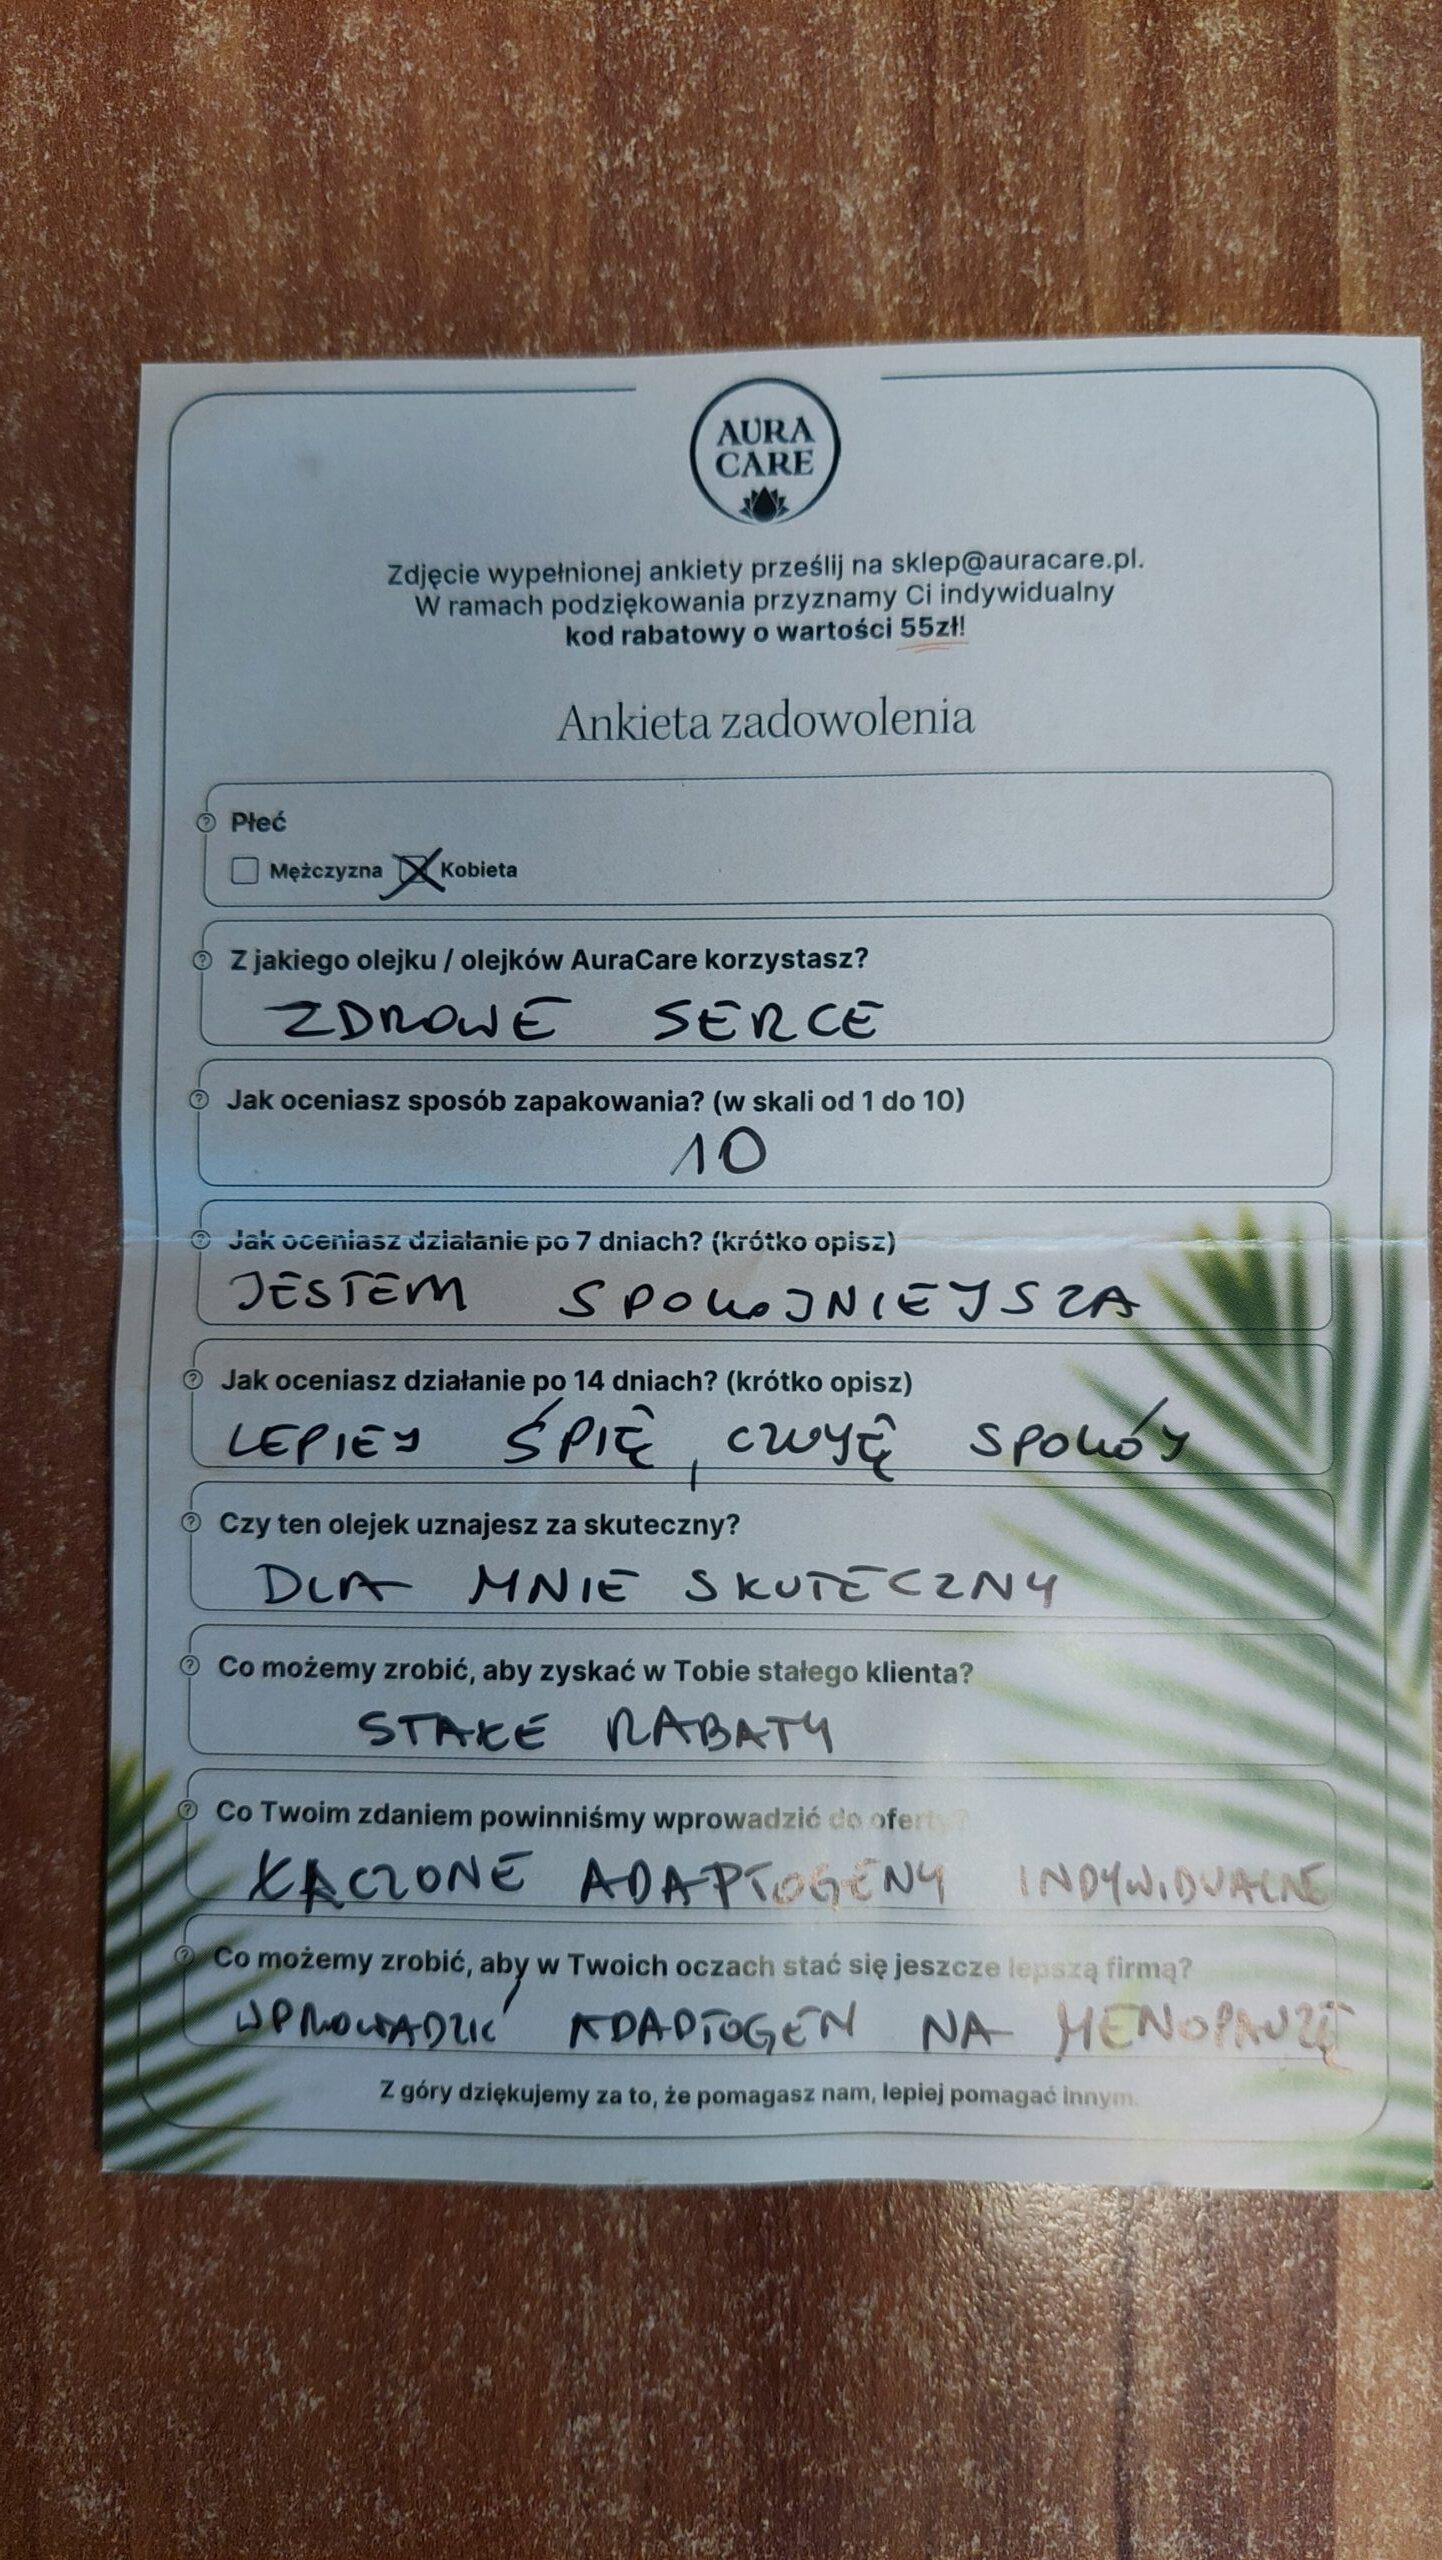 AURA
CARE
Zdjęcie wypełnionej ankiety prześlij na sklep@auracare.pl.
W ramach podziękowania przyznamy Ci indywidualny
kod rabatowy o wartości 55zł!
Ankieta zadowolenia
Płeć
Mężczyzna Kobieta
Z jakiego olejku / olejków AuraCare korzystasz?
ZDROWE SERCE
Jak oceniasz sposób zapakowania? (w skali od 1 do 10)
10
Jak oceniasz działanie po 7 dniach? (krótko opisz)
JESTEM SPOKOJNIEJSZA
Jak oceniasz działanie po 14 dniach? (krótko opisz)
LEPIEJ ŚPIĘ, CZUJĘ SPOKÓJ
Czy ten olejek uznajesz za skuteczny?
DLA MNIE SKUTECZNY
Co możemy zrobić, aby zyskać w Tobie stałego klienta?
STAŁE RABATY
Co Twoim zdaniem powinniśmy wprowadzić do oferty?
ŁĄCZONE ADAPTOGENY INDYWIDUALNE
Co możemy zrobić, aby w Twoich oczach stać się jeszcze lepszą firmą?
WPROWADZIĆ ADAPTOGEN NA MENOPAUZĘ
Z góry dziękujemy za to, że pomagasz nam, lepiej pomagać innym.